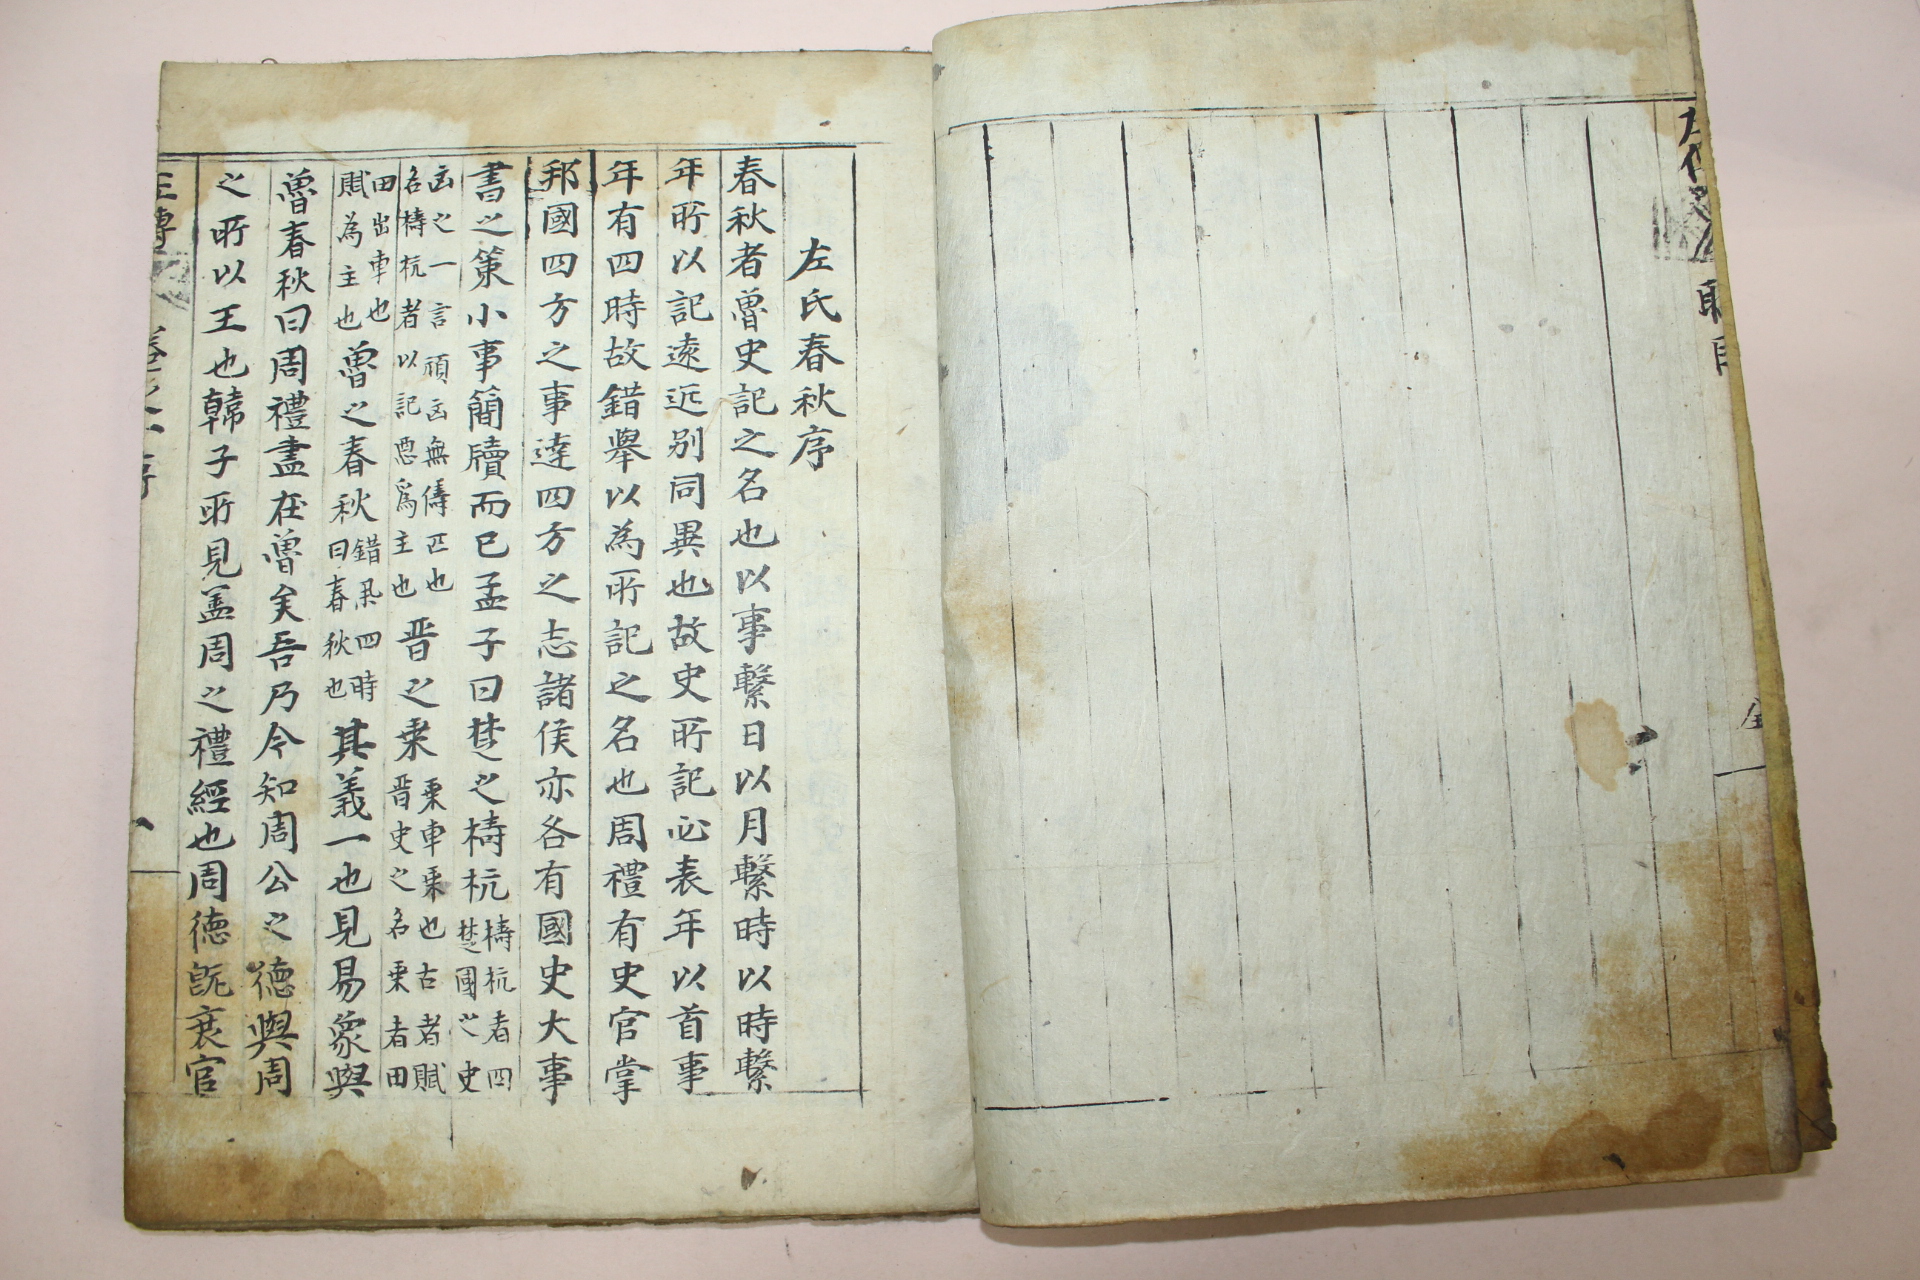 左氏春秋序
春秋者魯史記之名也以事繫日以月繫時以時繫
年所以記遠近别同異也故史所記必表年以首事
年有四時故錯舉以為所記之名也周禮有史官掌
邦國四方之事達四方之志諸侯亦各有國史大事
書之策小事簡牘而已孟子曰楚之檮杌
檮杌者四
楚國之史
凶之一言頑凶無儔匹也
名檮杌者以記惡爲主也
晋之乗
乗車乗也古者賦
晋史之名乗者田
田出車也
賦為主也
魯之春秋
錯舉四時
曰春秋也
其義一也見易象與
魯春秋曰周禮盡在魯矣吾乃今知周公之德與周
之所以王也韓子所見盖周之禮經也周德既衰官
左傳